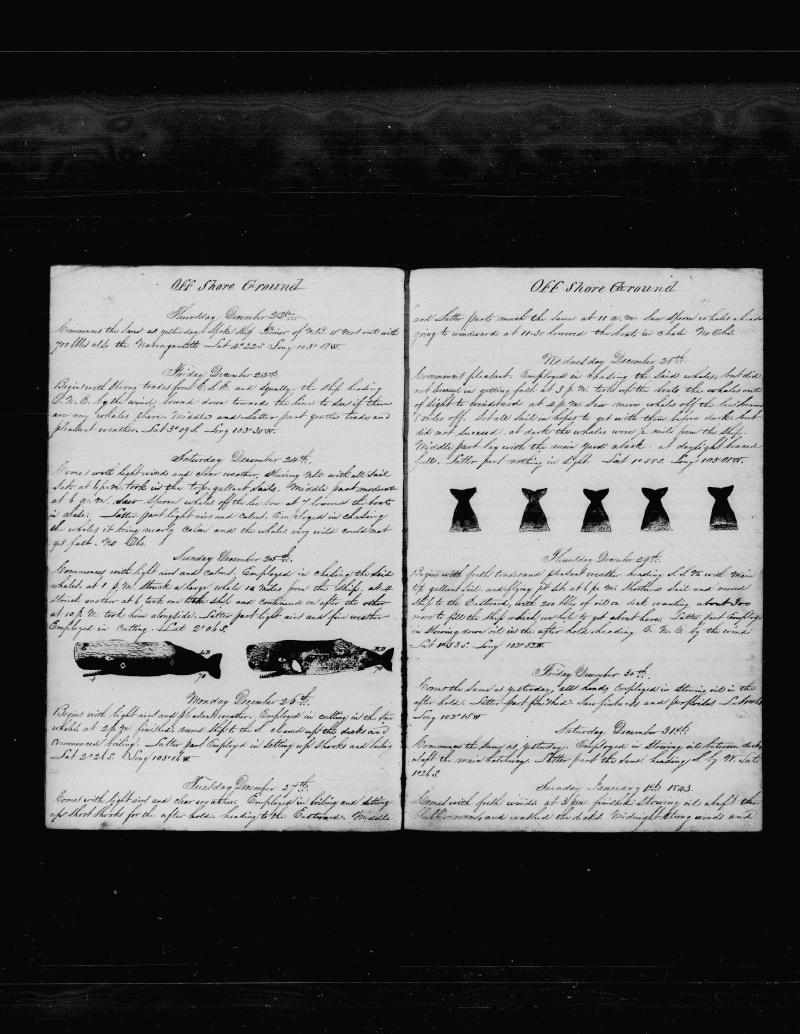 Off Shore Ground
Thursday December 22nd
Commences the same as yesterday Spoke Ship of N.B. 10 mos out with
700 bbls also the Narragansett Lat 4° 22 S Long 103° 57 W.
Friday December 23rd
Begins with strong trades from E.S.E. and squally. the ship heading
by the wind bound down towards the line to see if there
are any whales there. Middle and Latter part gentle trades and
pleasant weather. Lat 3° 09 S. Long 103° 30 W.
Saturday December 24th
Comes with light winds and clear weather. Stering with all sail
Set at 6 p.m. took in the top gallant sails. Middle part moderate
at 6 a.m. saw sperm whales off the lee bow at 7 lowered the boats
in chase. Latter part light airs and calms. Employed in chasing
the whales it being nearly calm and the whales very wild could not
get fast. No Obs.
Sunday December 25th
Commences with light airs and calms. Employed in chasing the said
whales. at 1 P.M. struck a large whale miles from the ship, at 4
struck another at 6 took one and continued on after the other
at 10 P.M. took him alongside. Latter part light airs and fine weather
Employed in cutting. Lat 2° 04 S.
70
70
Monday December 26th
Begins with light airs and pleasant weather. Employed in cutting in the
whales at 2 p.m. finished. ship to the S. cleared up the decks and
commenced boiling. Latter part Employed in setting up shooks and boiling
Lat 2° 26 S. Long 103° 16 W.
Tuesday December 27th
Comes with light airs and clear weather. Employed in boiling and setting
up short shooks for the after hold. heading to the Eastward. Middle
Off Shore Ground
and Latter parts much the same at 11 a.m. saw sperm whales ahead
going to windward at 11-30 lowered the boats in chase. No Obs.
Wednesday December 28th
Commences pleasant. Employed in chasing the said whales, but did
not succeed in getting fast at 3 p.m. took up the boats the whales out
of sight to windward at 4 p.m. saw more whales off the
miles off. Set all sail in hopes to get with them before dark, but
did not succeed. at dark the whales were 1/2 mile from the ship.
Middle part lay with the main yard aback. at daylight braced
full. Latter part nothing in sight. Lat 1° 55 S. Long 103° 01 W.
Thursday December 29th
Begins with fresh trades and pleasant weather heading S.S.W. with main
top gallant sail and flying jib set. at 6 p.m. shortened sail and
ship to the Eastward, with 200 bbls of oil on deck wanting about 300
more to fill the ship which we hope to get about here. Latter part Employed
in stowing down oil in the after hold heading by the wind
Lat Long 102° 52 W.
Friday December 30th
Comes the same as yesterday, all hands Employed in stowing oil in the
after hold. Latter part finished. Saw finbacks and porpoises.
Long 103° 15 W
Saturday December 31st
Commences the same as yesterday. Employed in stowing oil between decks
aft the main hatchway. Latter part the same heading S by W. Lat
1° 26 S.
Sunday January 1st 1843
Comes with fresh winds at 3 p.m. finished stowing oil abaft the
and washed the decks. Midnight strong winds and